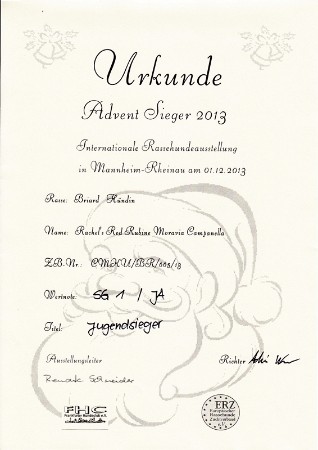 Urkunde
Advent Sieger 2013
Internationale Rassehundeausstellung
in Mannheim-Rheinau am 01.12.2013
Rasse: Briard Hündin
Name: Rachel's Red Rubine Moravia Campanella
ZB.Nr.: CMKU/BR/665/13
Wertnote: SG 1 / JA
Titel: Jugendsieger
Ausstellungsleiter
Richter
Renate Schneider
FHC
ERZ
Europäischer
Rassehunde
e.V.